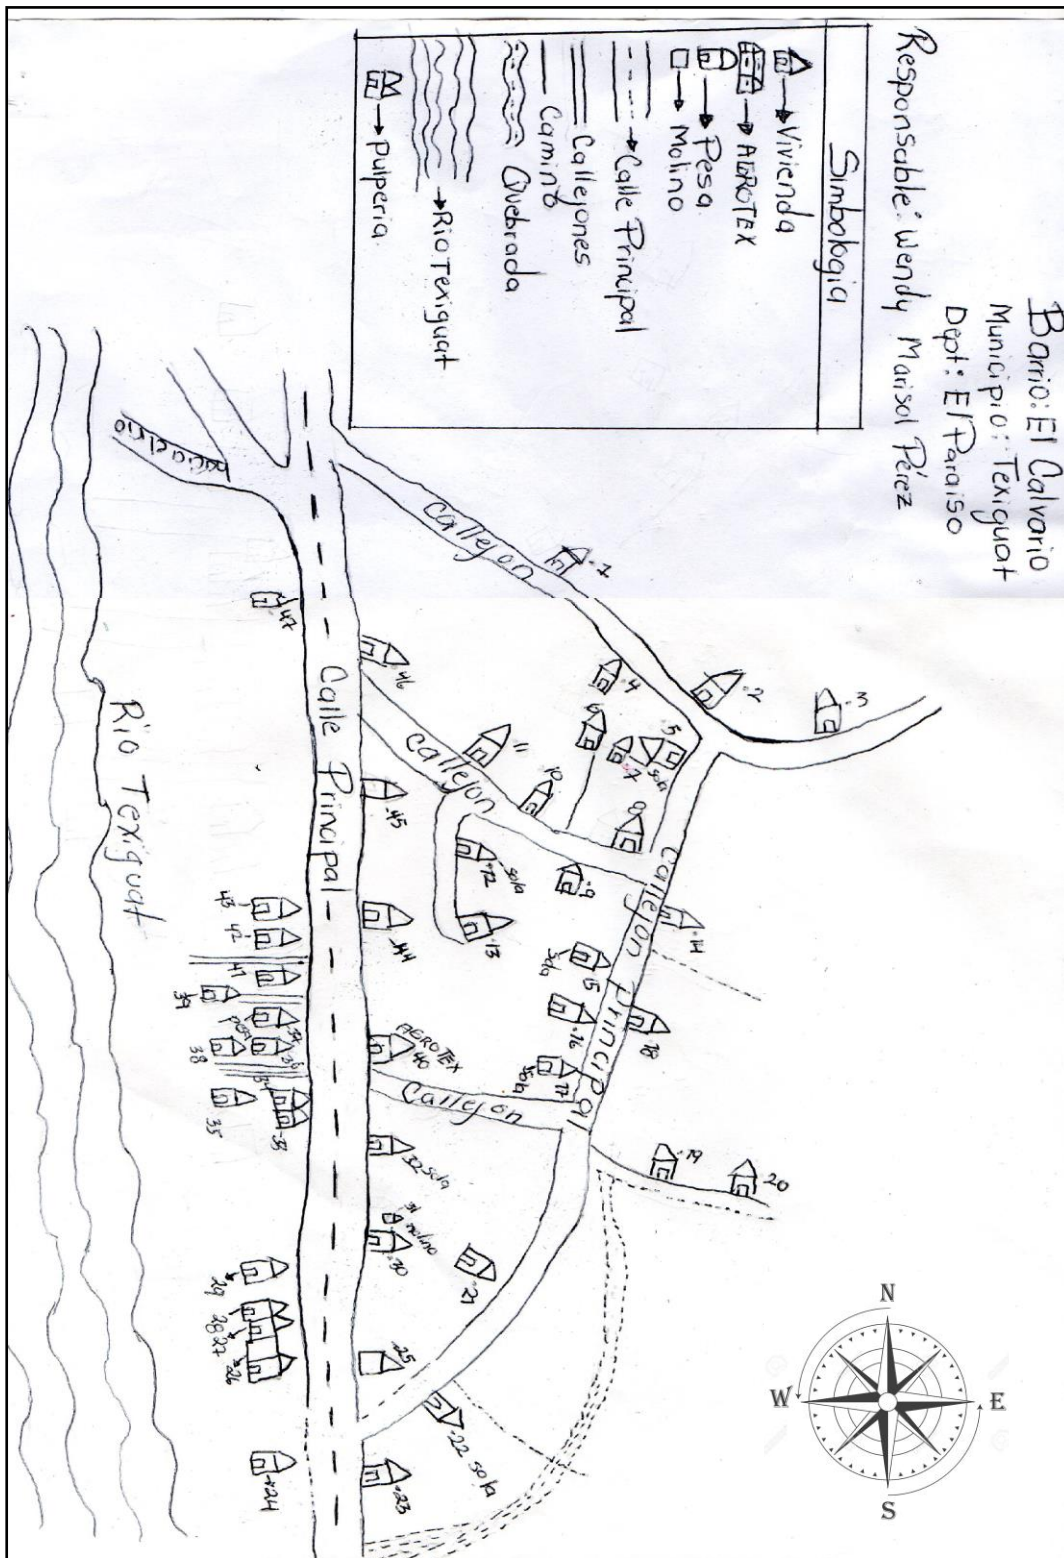 Barrio: El Calvario
Municipio: Texiguat
Dept: El Paraiso
Responsable: Wendy Marisol Pérez
Simbologia
Vivienda
AGROTEX
Pesa
Molino
Calle Principal
Callejones
Camino
Quebrada
Rio Texiguat
pulperia
Callejon
Calle Principal
Callejon
Callejon Principal
Callejon
Rio Texiguat
1
2
3
4
5
sola
6
7
8
9
10
11
12
sola
13
14
15
sola
16
17
sola
18
19
20
21
22 sola
23
24
25
26
27
28
29
30
31
molino
32 sola
33
34
35
38
39
AGROTEX
40
41
42
43
44
45
46
47
N
E
S
W